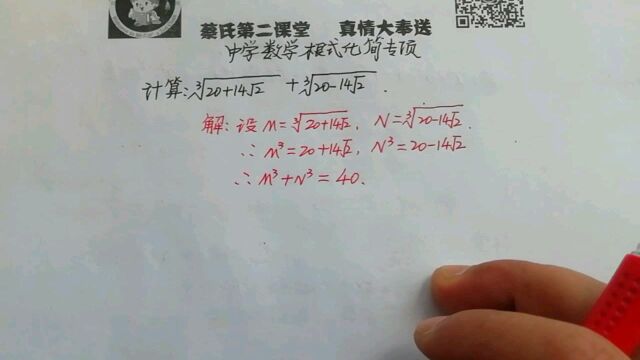 蔡氏第二课堂 真情大奉送
中学数学根式化简专项
计算:∛(20+14√2) + ∛(20-14√2).
解:设M=∛(20+14√2), N=∛(20-14√2).
∴M³=20+14√2, N³=20-14√2
∴M³+N³=40.